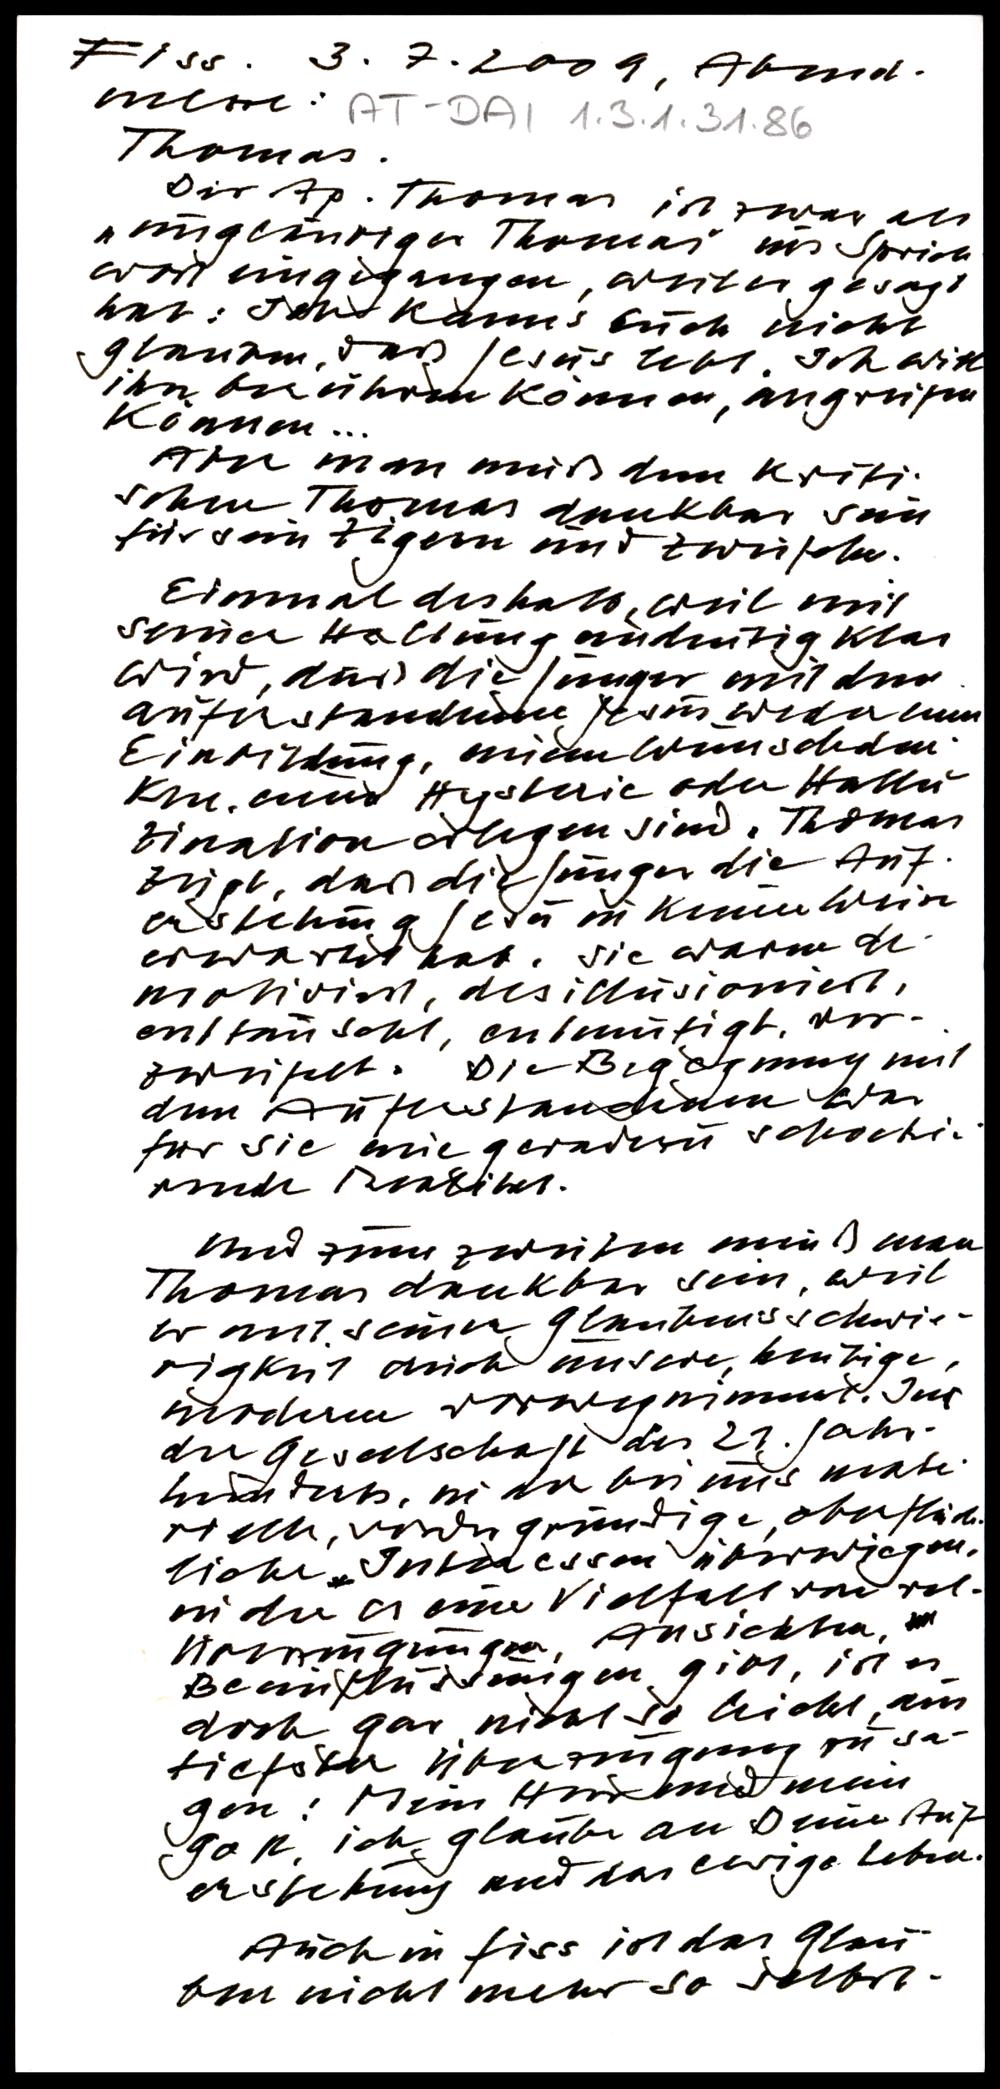 Fiss. 3. 7. 2009, Abend-
messe:
AT-DAI 1.3.1.31.86
Thomas.
Der Ap. Thomas ist zwar als
„ungläubiger Thomas" ins Sprich
wort eingegangen, weil er gesagt
hat: Ich kanns euch nicht
glauben, daß Jesus lebt. Ich will
ihn berühren können, angreifen
können...
Aber man muß dem kriti-
schen Thomas dankbar sein
für sein Zögern und Zweifeln.
Einmal deshalb, weil mit
seiner Haltung eindeutig klar
wird, daß die Jünger mit dem
auferstandenen Jesus weder einer
Einbildung, einem Wunschden-
ken, einer Hysterie oder Hallu
zination erlegen sind. Thomas
zeigt, daß die Jünger die Auf-
erstehung Jesu in keiner Weise
erwartet hab. Sie waren de-
motiviert, desillusioniert,
enttäuscht, entmutigt, ver-
zweifelt. Die Begegnung mit
dem Auferstandenen war
für sie eine geradezu schocki-
rende Realität.
Und zum zweiten muß man
Thomas dankbar sein, weil
er mit seiner Glaubensschwie-
rigkeit auch unsere, heutige,
moderne vorwegnimmt. In
der Gesellschaft des 21. Jahr-
hunderts, in der bei uns mate-
rielle, vordergründige, oberfläch-
liche Interessen überwiegen,
in der es eine Vielfalt von rel.
Überzeugungen, Ansichten,
Beeinflussungen gibt, ist es
doch gar nicht so leicht, aus
tiefster Überzeugung zu sa-
gen: Mein Herr und mein
Gott, ich glaube an Deine Auf
erstehung und das ewige Leben.
Auch in Fiss ist das Glau
ben nicht mehr so selbst-